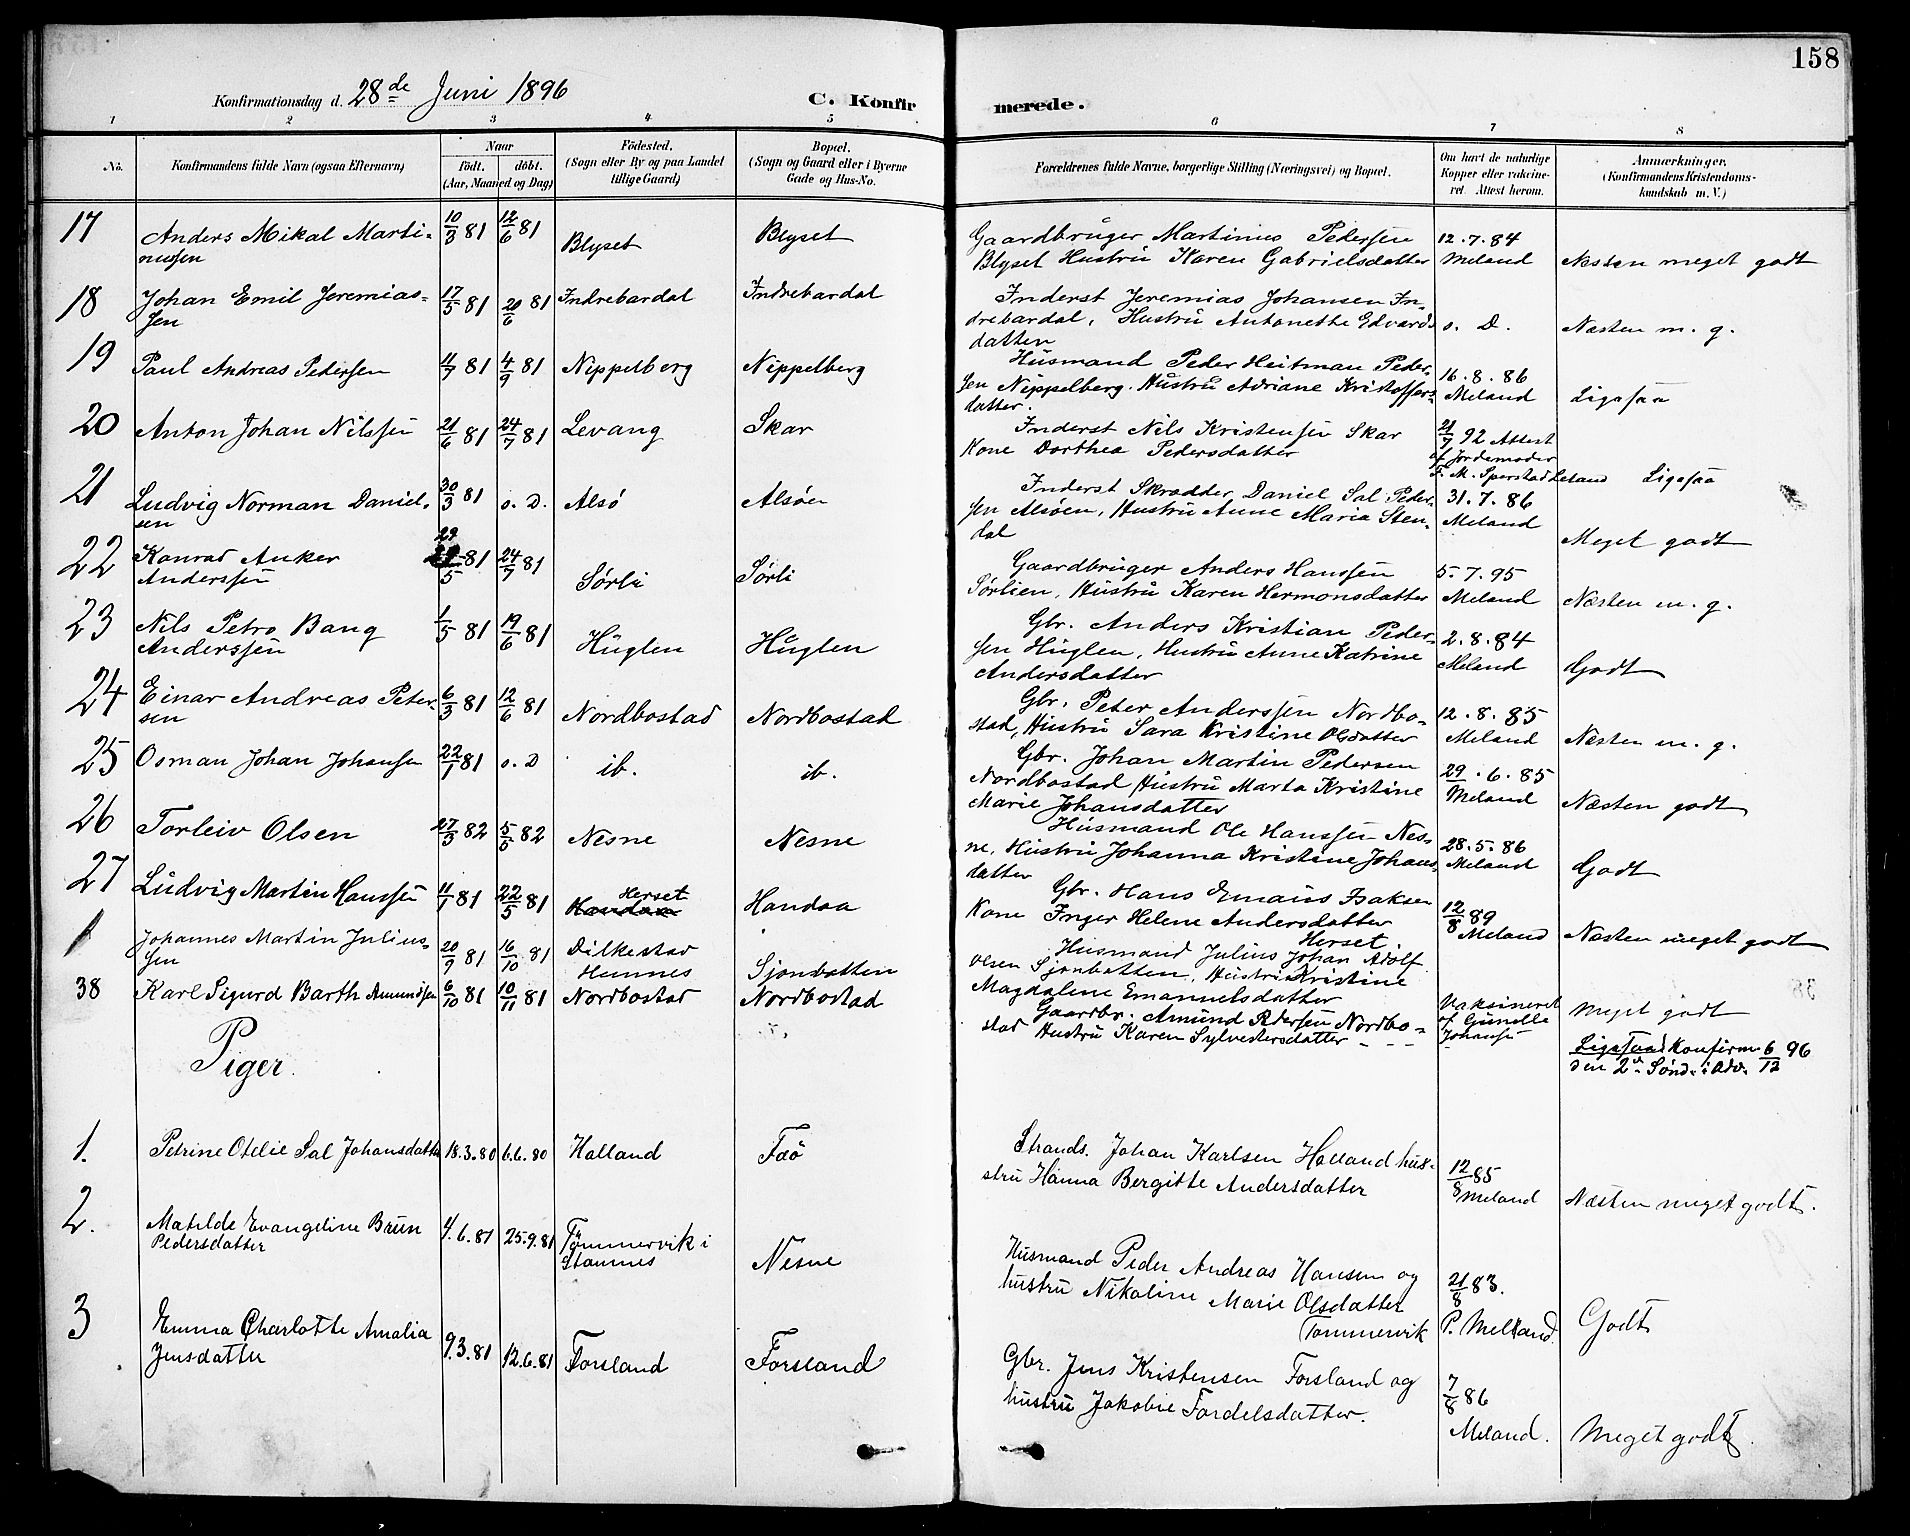 158
Konfirmationsdag d. 28de Juni 1896
C. Konfir
merede.
1 2 3 4 5 6 7 8
No.
Konfirmandens fulde Navn (ogsaa Efternavn)
Naar
födt. döbt.
(Aar, Maaned og Dag)
Födested.
(Sogn eller By og paa Landet
tillige Gaard)
Bopæl.
(Sogn og Gaard eller i Byerne
Gade og Hus-No.
Forældrenes fulde Navne, borgerlige Stilling (Næringsvei) og Bopæl.
Om havt de naturlige
Kopper eller vakcine-
ret. Attest herom.
Anmærkninger.
(Konfirmandens Kristendoms-
kundskab m. V.)
17 Anders Mikal Marti-
nussen
10/3 81 12/6 81 Blyset Blyset
Gaardbruger Martinus Pedersen
Blyset Hustru Karen Gabrielsdatter
12.7.84
Meland
Næsten meget godt
18 Johan Emil Jeremias-
sen
17/5 81 20/6 81 Indrebardal Indrebardal
Inderst Jeremias Johansen In-
drebardal, Hustru Antonette Edvards
datter
o. D.
Næsten m. g.
19 Paul Andreas Pedersen 11/7 81 4/9 81 Nippelberg Nippelberg
Husmand Peder Heitman Peder-
sen Nippelberg. Hustru Adriane Kristoffers-
datter.
16.8.86
Meland
Ligesaa
20 Anton Johan Nilssen 21/6 81 24/7 81 Levang Skar
Inderst Nils Kristensen Skar
Kone Dorthea Pedersdatter
21/7 92 Attest
af Jordemoder
F. M. Sperstad Leland
Ligesaa
21 Ludvig Norman Daniel-
sen
30/3 81 o. D. Alsö Alsöen
Inderst Skrædder Daniel Sal Peder-
sen Alsöen, Hustru Anne Maria Sten-
dal
31.7.86
Meland
Meget godt
22 Konrad Anker
Anderssen
29/5 81 24/7 81 Sörli Sörli
Gaardbruger Anders Hanssen
Sörlien, Hustru Karen Hermonsdatter
5.7.95
Meland
Næsten m. g.
23 Nils Petro Bang
Anderssen
1/5 81 19/6 81 Huglen Huglen
Gbr. Anders Kristian Peder-
sen Huglen, Hustru Anne Katrine
Andersdatter
2.8.84
Meland
Godt
24 Einar Andreas Peter-
sen
6/3 81 12/6 81 Nordbostad Nordbostad
Gbr. Peter Anderssen Nordbo-
stad, Hustru Sara Kristine Olsdatter
12.8.85
Meland
Næsten m. g.
25 Osman Johan Johansen 22/1 81 o. D ib. ib.
Gbr. Johan Martin Pedersen
Nordbostad Hustru Marta Kristine
Marie Johansdatter
29.6.85
Meland
Næsten godt
26 Torleiv Olsen 27/3 82 5/5 82 Nesne Nesne
Husmand Ole Hanssen Nes-
ne, Hustru Johanna Kristine Johans-
datter
28.5.86
Meland
Godt
27 Ludvig Martin Hanssen 11/1 81 22/5 81 Herset
Handaa Handaa
Gbr. Hans Emaus Isaksen
Kone Inger Helene Andersdatter
Herset.
12/8 89
Meland
Næsten meget godt
Johannes Martin Julius-
sen
20/9 81 16/10 81 Dilkestad
Hemnes
Sjonbotten
Husmand Julius Johan Adolf
Olsen Sjonbotten, Hustru Kristine
Magdalene Emanuelsdatter
Meget godt
38 Karl Sigurd Barth Amundsen 6/10 81 10/11 81 Nordbostad Nordbostad
Gaardbr. Amund Pedersen Nordbo-
stad Hustru Karen Sylvestersdatter
Vaksineret
af Gunelle
Johansen
Ligesaa Konfirm. 6/12 96
den 2d Sönd. i Adv.
Piger.
1. Petrine Otelie Sal Johansdatter 18.3.80 6.6.80 Halland Faö
Strands. Johan Karlsen Halland hus-
stru Hanna Bergitte Andersdatter
12/8 85
Meland
Næsten meget godt.
2. Matilde Evangeline Brun
Pedersdatter
4.6.81 25.9.81 Tömmervik i
Stamnes
Nesne
Husmand Peder Andreas Hansen og
hustru Nikoline Marie Olsdatter
Tømmervik
21/8 83.
P. Melland.
Godt
3 Emma Charlotte Amalia
Jensdatter
9.3.81 12.6.81 Forsland Forsland
Gbr. Jens Kristensen Forsland og
hustru Jakobie Tordelsdatter.
7/8 86
Meland.
Meget godt.